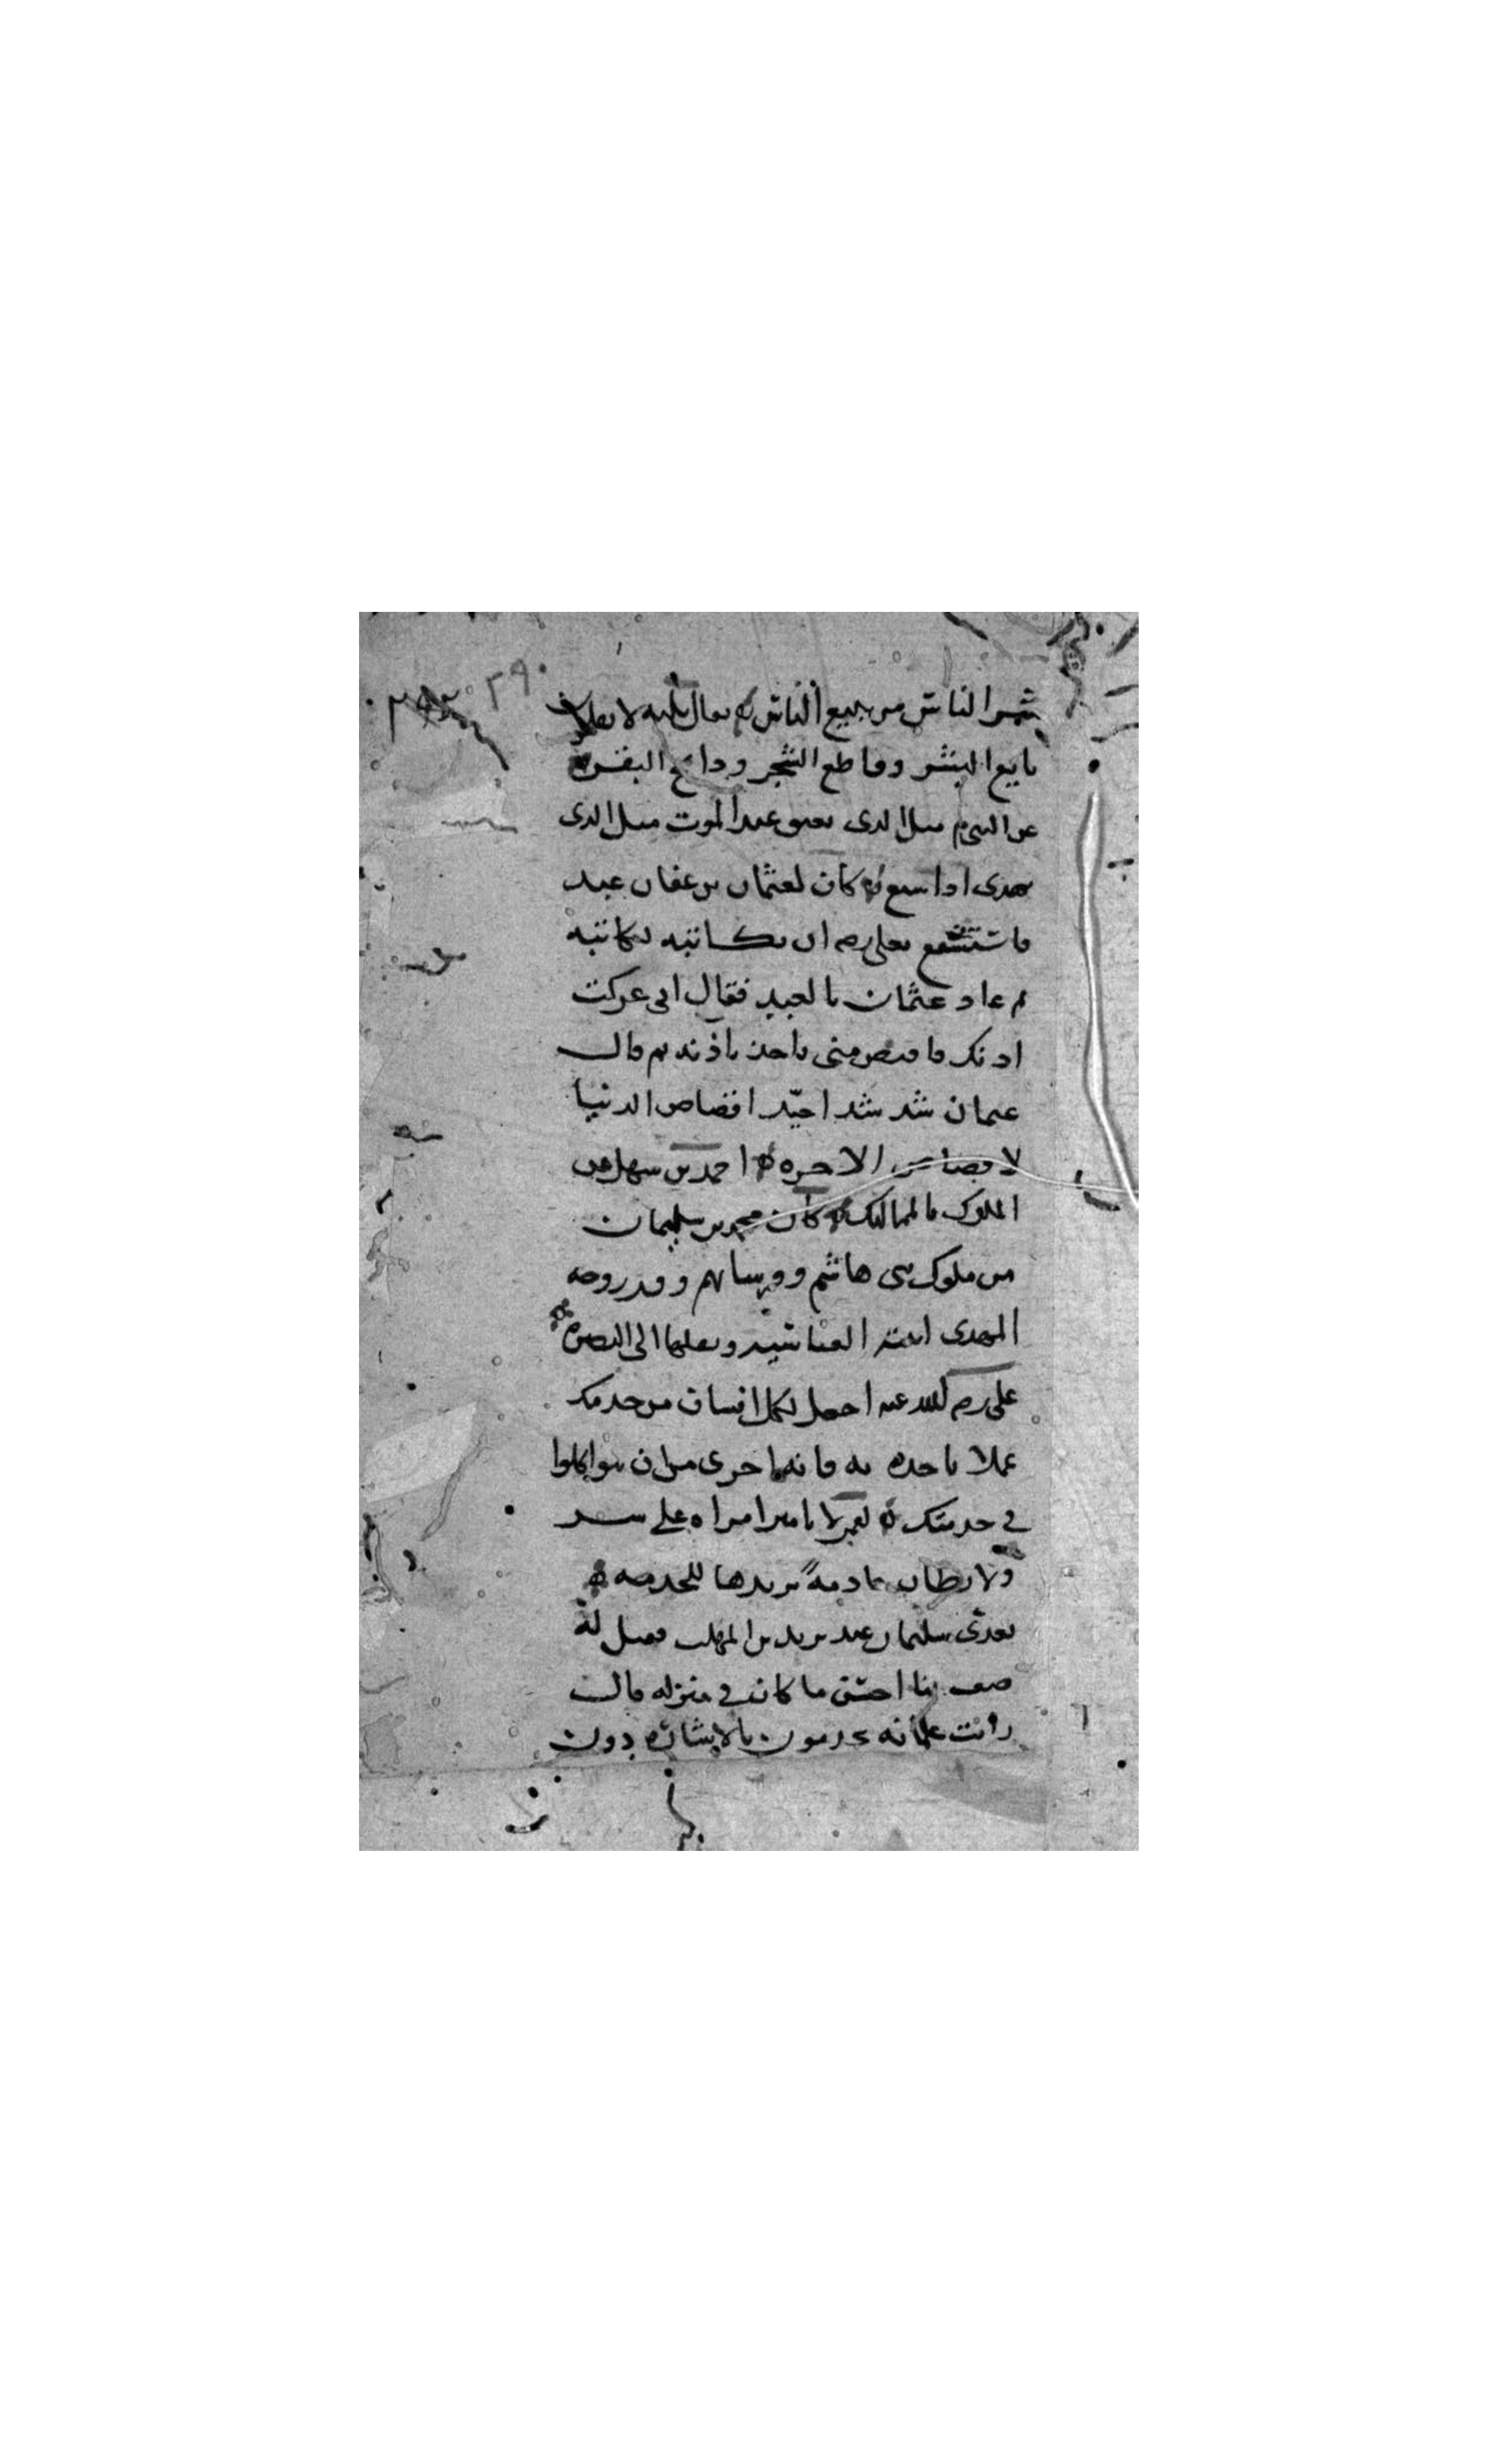 ٢٩٠
شر الناس من يبيع الناس يقال ثلثه لا يفلحون
بايع البشر وقاطع الشجر وذابح البقر
عن النبي م مثل الذي يعتق عند الموت مثل الذي
يهدى اذا شبع كان لعثمان بن عفان عبد
فاستشفع بعلى رضه ان يكاتبه فكاتبه
ثم عاد عثمان بالعبيد فقال انى عركت
اذنك فاقتص منى فاخذ باذنه ثم قال
عثمان شد شد احبّذا قصاص الدنيا
لا قصاص الاخره احمد بن سهل
الملوك بالمماليك كان محمد بن سليمان
من ملوك بنى هاشم وفرسانهم وقد زوجه
المهدى ابنته العباسيه ونقلها الى البصره
على رضى الله عنه اجعل لكل انسان من خدمك
عملا تاخذه به فانه احرى من ان يتواكلوا
في خدمتك لا تامر امراه على سر
ولا يطاب خادمة يريدها للخدمه
تغدى سليمان عند يزيد بن المهلب فقيل له
صف لنا احسن ما كان في منزله قال
رايت غلمانه يخدمون بالاشاره دون